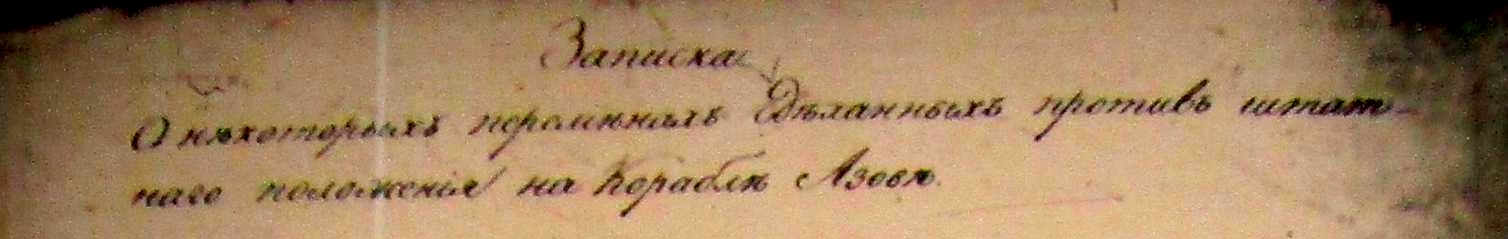 Записка
О нѣкоторыхъ перемѣнахъ сдѣланныхъ противъ штат-
наго положенія на Кораблѣ Азовѣ.